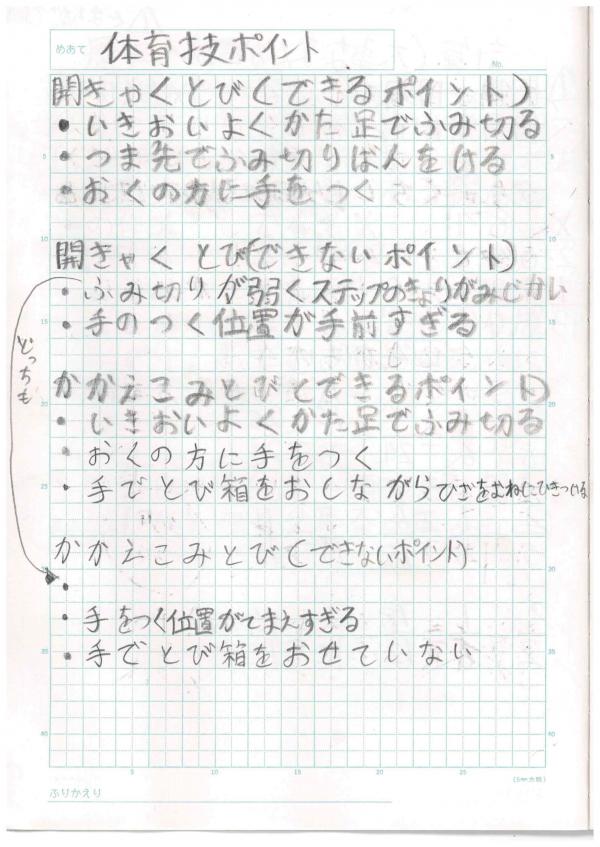 めあて 体育技ポイント
No.
開きゃくとび(できるポイント)
・いきおいよくかた足でふみ切る
・つま先でふみ切りばんをける
・おくの方に手をつく
開きゃくとび(できないポイント)
・ふみ切りが弱くステップのきょりがみじかい
・手のつく位置が手前すぎる
どっちも
かかえこみとび(できるポイント)
・いきおいよくかた足でふみ切る
・おくの方に手をつく
・手でとび箱をおしながらひざをむねにひきつける
かかえこみとび(できないポイント)
・
・手をつく位置がてまえすぎる
・手でとび箱をおせていない
5 10 15 20 25
(5mm方眼)
ふりかえり